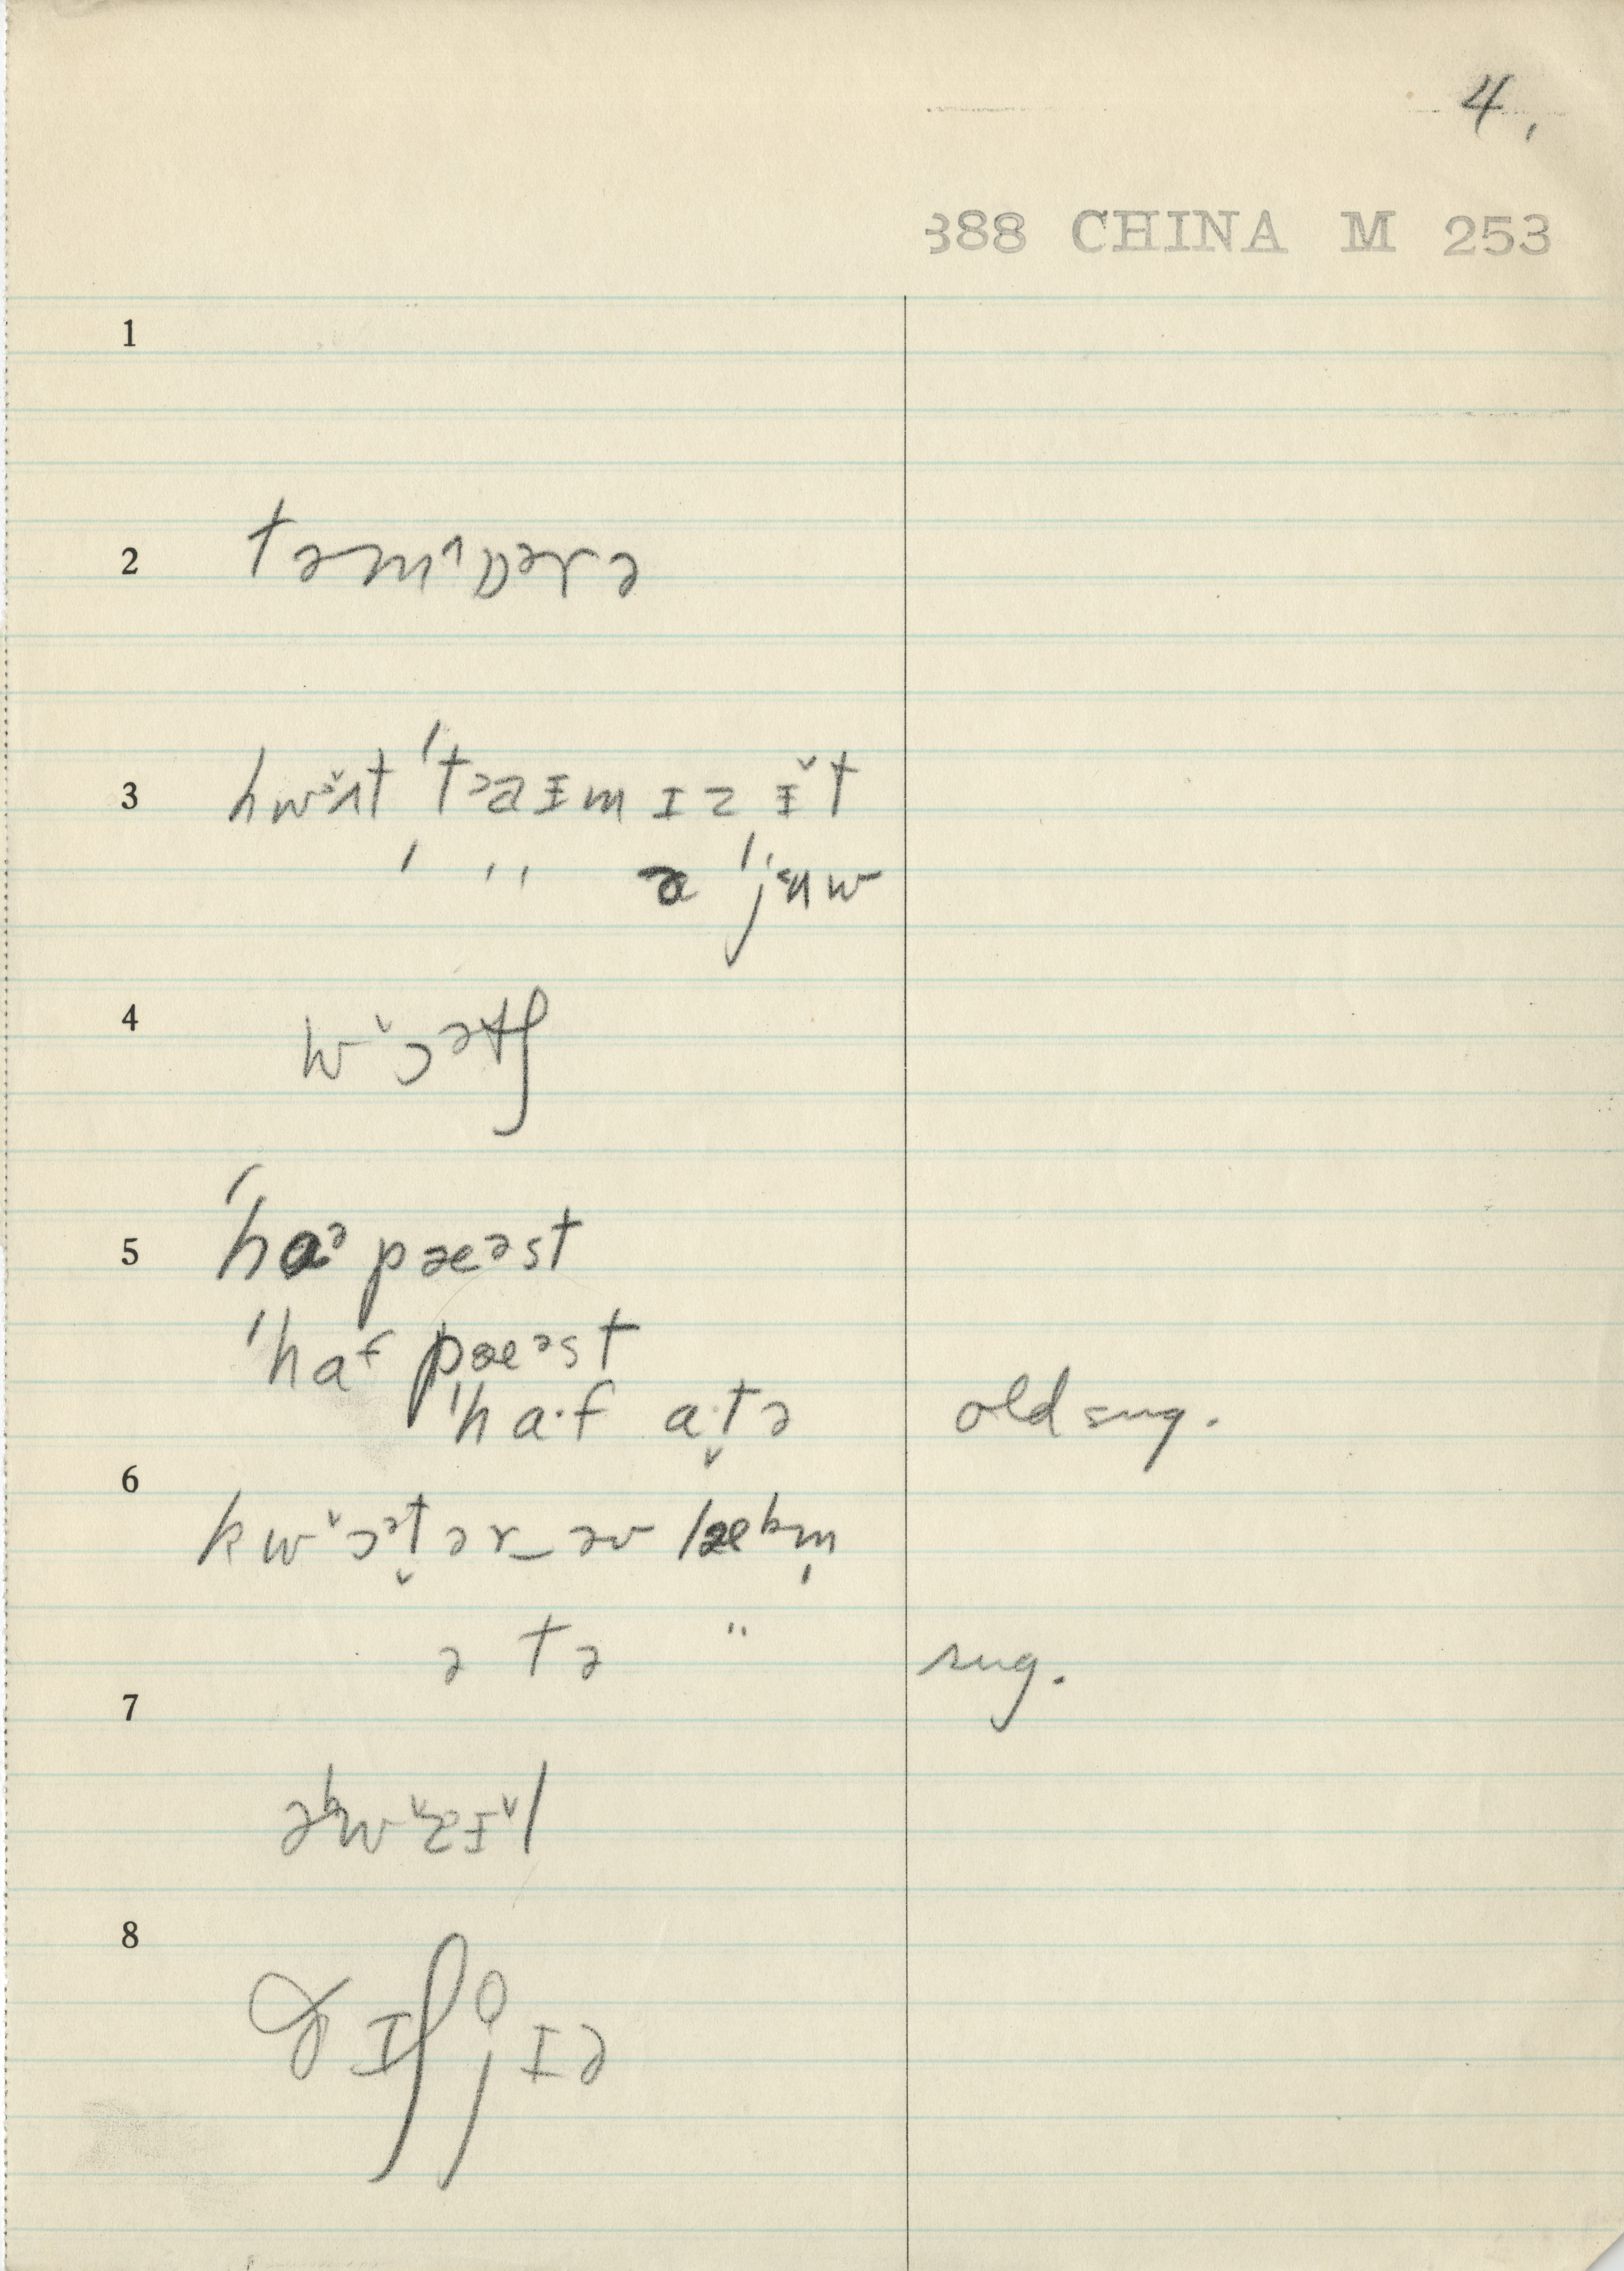 4.
388 CHINA M 253
1
2 təmˈɒərə
3 hwɔ̌ʌt ˈtaɪm ɪz ɪ̌t
ˈ " ə ˈjɛʉw
4 wɔ̌ətʃ
5 ˈhaə pæəst
ˈhaf pæəst
ˈha·f a·t̬ə old sug.
6
kwɔ̌ət̬ər‿əv lebm̩
ə tə " sug.
7
əkwɛ̌ɪ̌l
8 ðɪʃ j̊ɪə